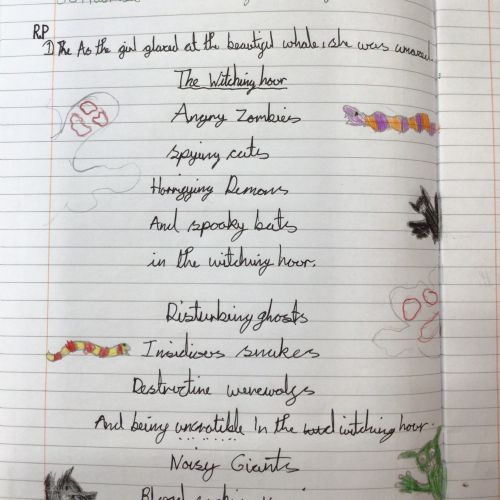 RP
1) The As the girl glared at the beautiful whale, she was amazed.
The Witching hour
Angry Zombies
spying cats
Horrifying Demons
And spooky bats
in the witching hour.
Disturbing ghosts
Insidious snakes
Destructine werewolfs
And being uncratible In the witching hour.
Noisy Giants
Blood